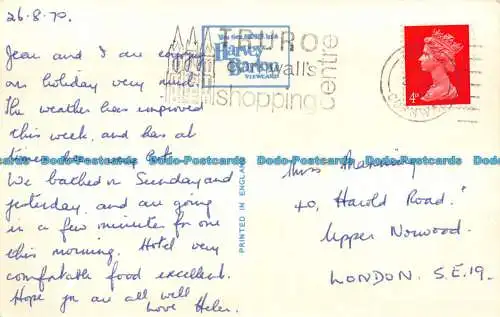 26.8.70.
Jean and I are enjoying
our holiday very much.
The weather has improved
this week, and has at
times been very hot.
We bathed on Sunday and
yesterday, and are going
in a few minutes for one
this morning. Hotel very
comfortable food excellent.
Hope you are all well
Love Helen.
TRURO
Cornwall's
shopping centre
You saw
Harvey
Barton
VIEWCARD
4D
CORNWALL
Dodo-Postcards Dodo-Postcards Dodo-Postcards Dodo-Postcards Dodo-Postcards Dodo-Postcards
PRINTED IN ENGLAND
Miss
40, Harold Road.
Upper Norwood.
LONDON. S.E.19.